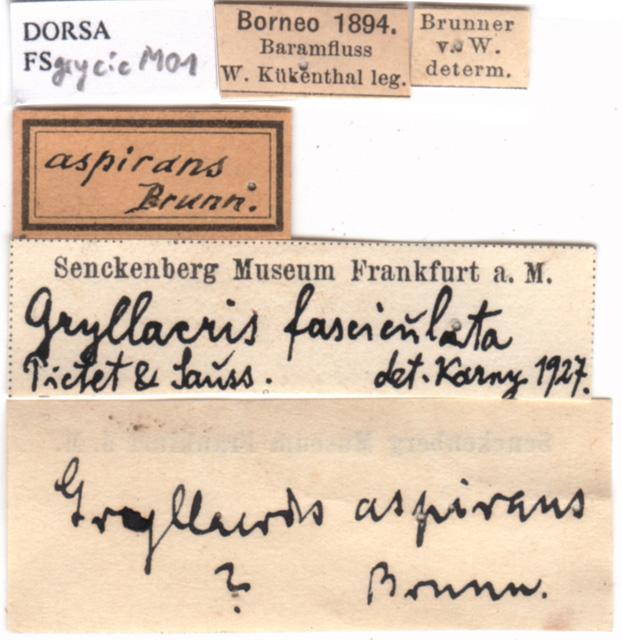 DORSA
FSgrycic M01
Borneo 1894.
Baramfluss
W. Kükenthal leg.
Brunner
v. W.
determ.
aspirans
Brunn.
Senckenberg Museum Frankfurt a. M.
Gryllacris fasciculata
Pictet & Sauss. det. Karny 1927.
Gryllacris aspirans
? Brunn.